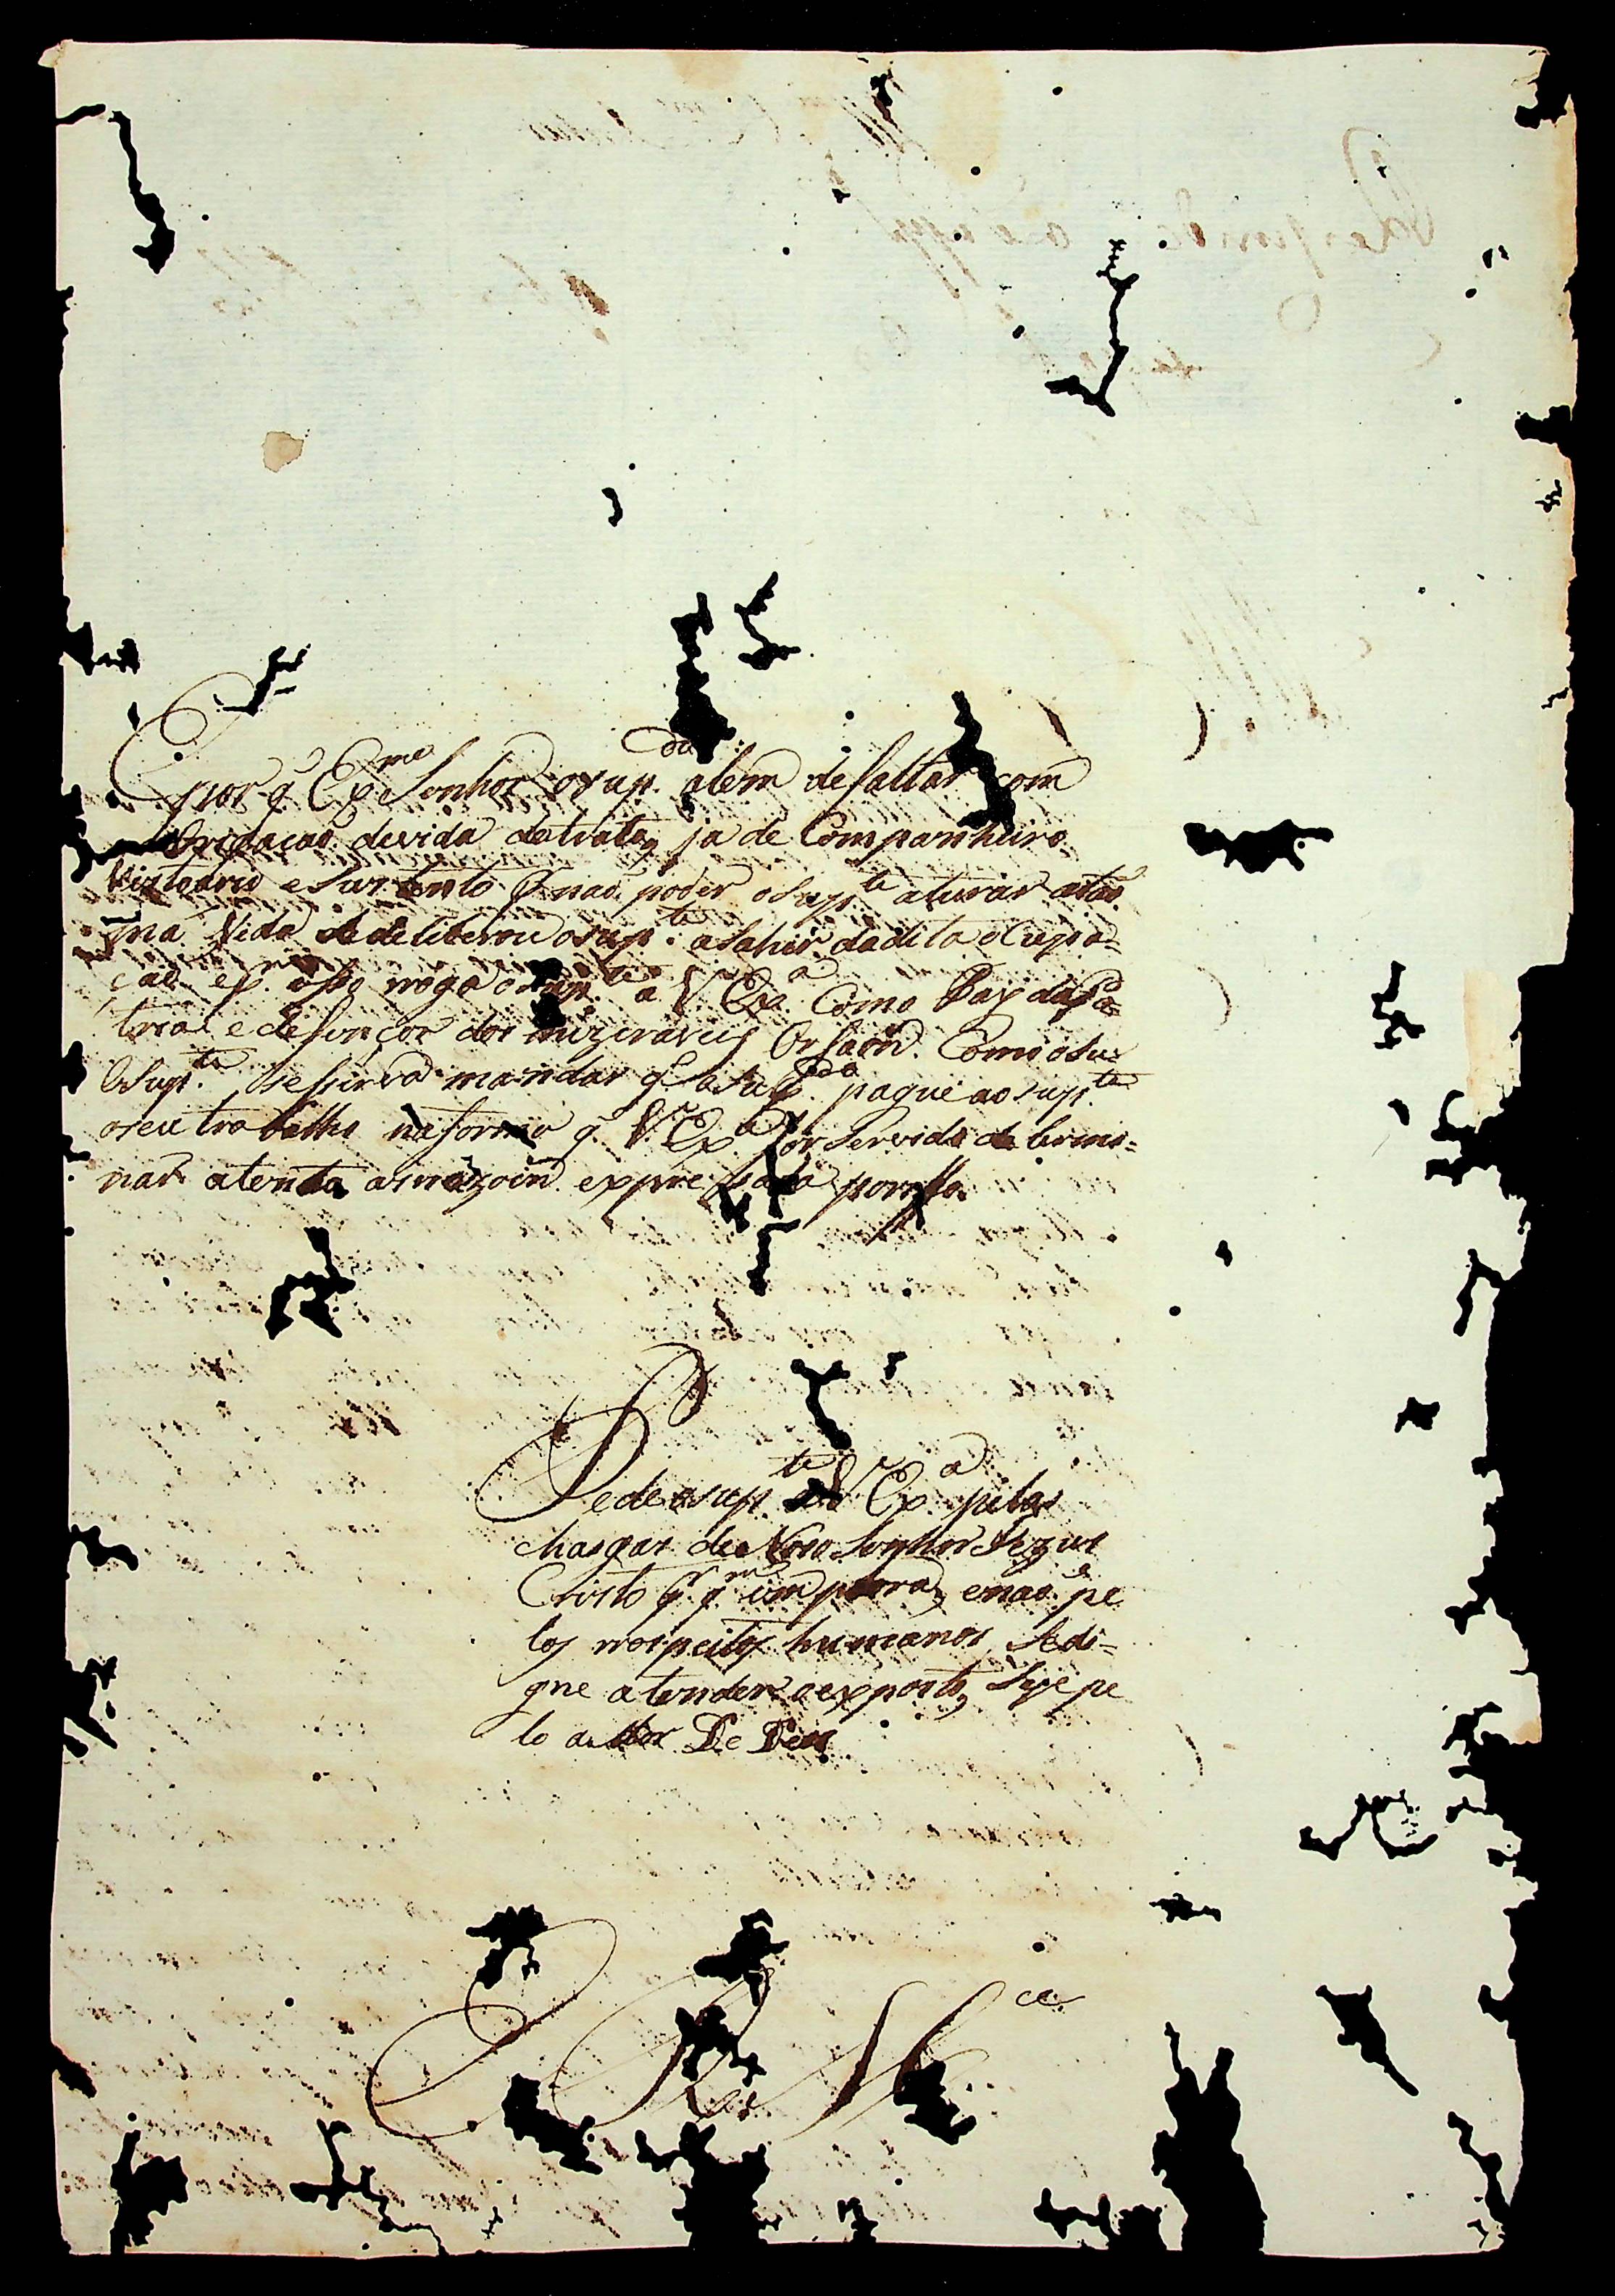 E por q̃ Exmo Senhor o sup.do alem de faltar com
obrigacaõ devida do trato, ja de Companheiro
Vistoario e Sustento q naõ poder o Sup.te aturar a taõ
má Vida se deliberou o sup.te a Sahir da dita ocupa=
çaõ e p.r isso roga o sup.te a V Ex.a Como Pay da Pa=
tria e defençor dos mizeraveis Orfaõn. Como o Su=
O Sup.te se sirva mandar q̃ o Sup.do pague ao sup.te
o seu trabalho na forma q̃ V. Ex.a for Servido detremi=
nar atenta as razoin expressada por isso
Pede o sup.te a V Ex.a pelas
chasgas de Noso Senhor Jezus
Cristo p.r q.m impetora, e naõ pe
los respeitos humanos, Se di=
gne atender o exposto, Sije pe
lo amor De Deus
E R M.ce